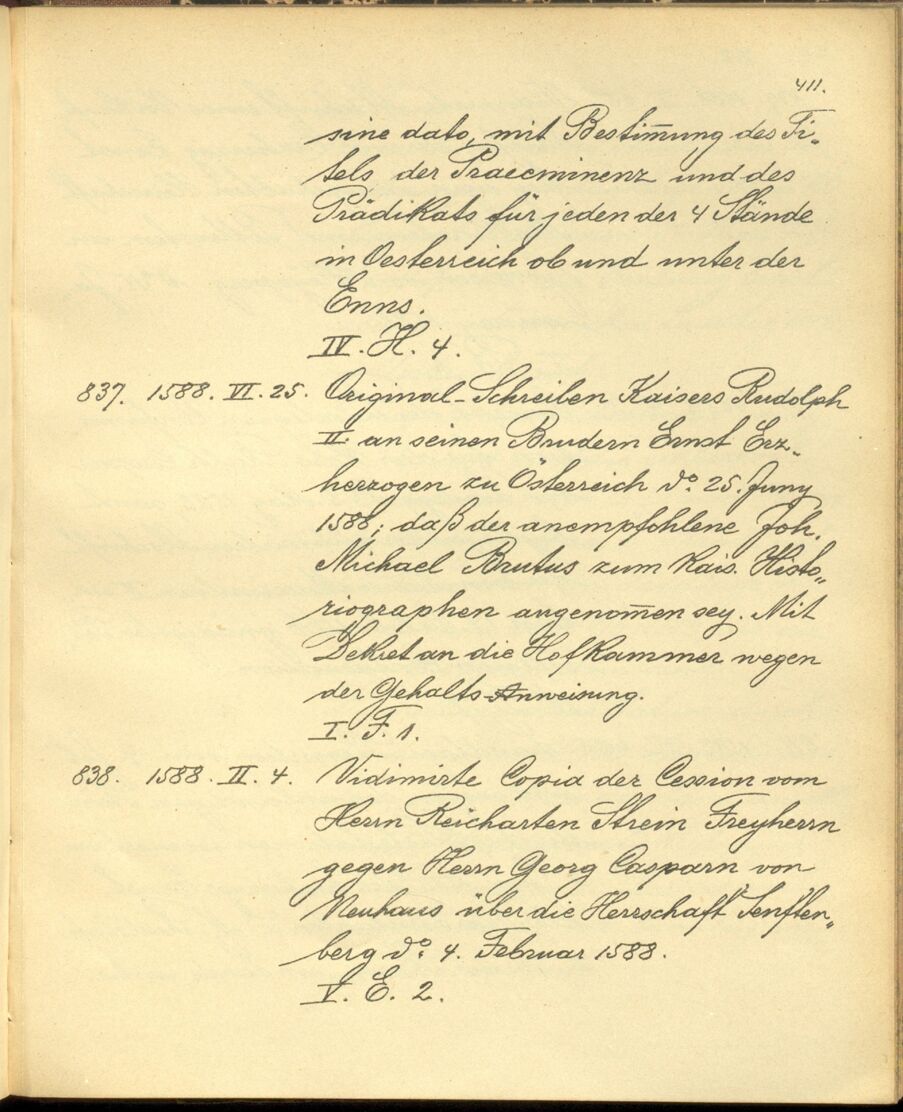 411.
sine dato, mit Bestim̅ung des Ti-
tels, der Praeeminenz und des
Prädikats für jeden der 4 Stände
in Oesterreich ob und unter der
Enns.
IV. H. 4.
837. 1588. VI. 25. Original-Schreiben Kaisers Rudolph
II. an seinen Brudern Ernst Erz-
herzogen zu Österreich do. 25. Juny
1588; daß der anempfohlene Joh.
Michael Brutus zum Kais. Histo-
riographen angenom̅en sey. Mit
Dekret an die Hofkammer wegen
der Gehalts-Anweisung.
I. F. 1.
838. 1588. II. 4. Vidimirte Copia der Cession vom
Herrn Reicharten Strein Freyherrn
gegen Herrn Georg Casparn von
Neuhaus über die Herrschaft Senften-
berg do. 4. Februar 1588.
V. E. 2.